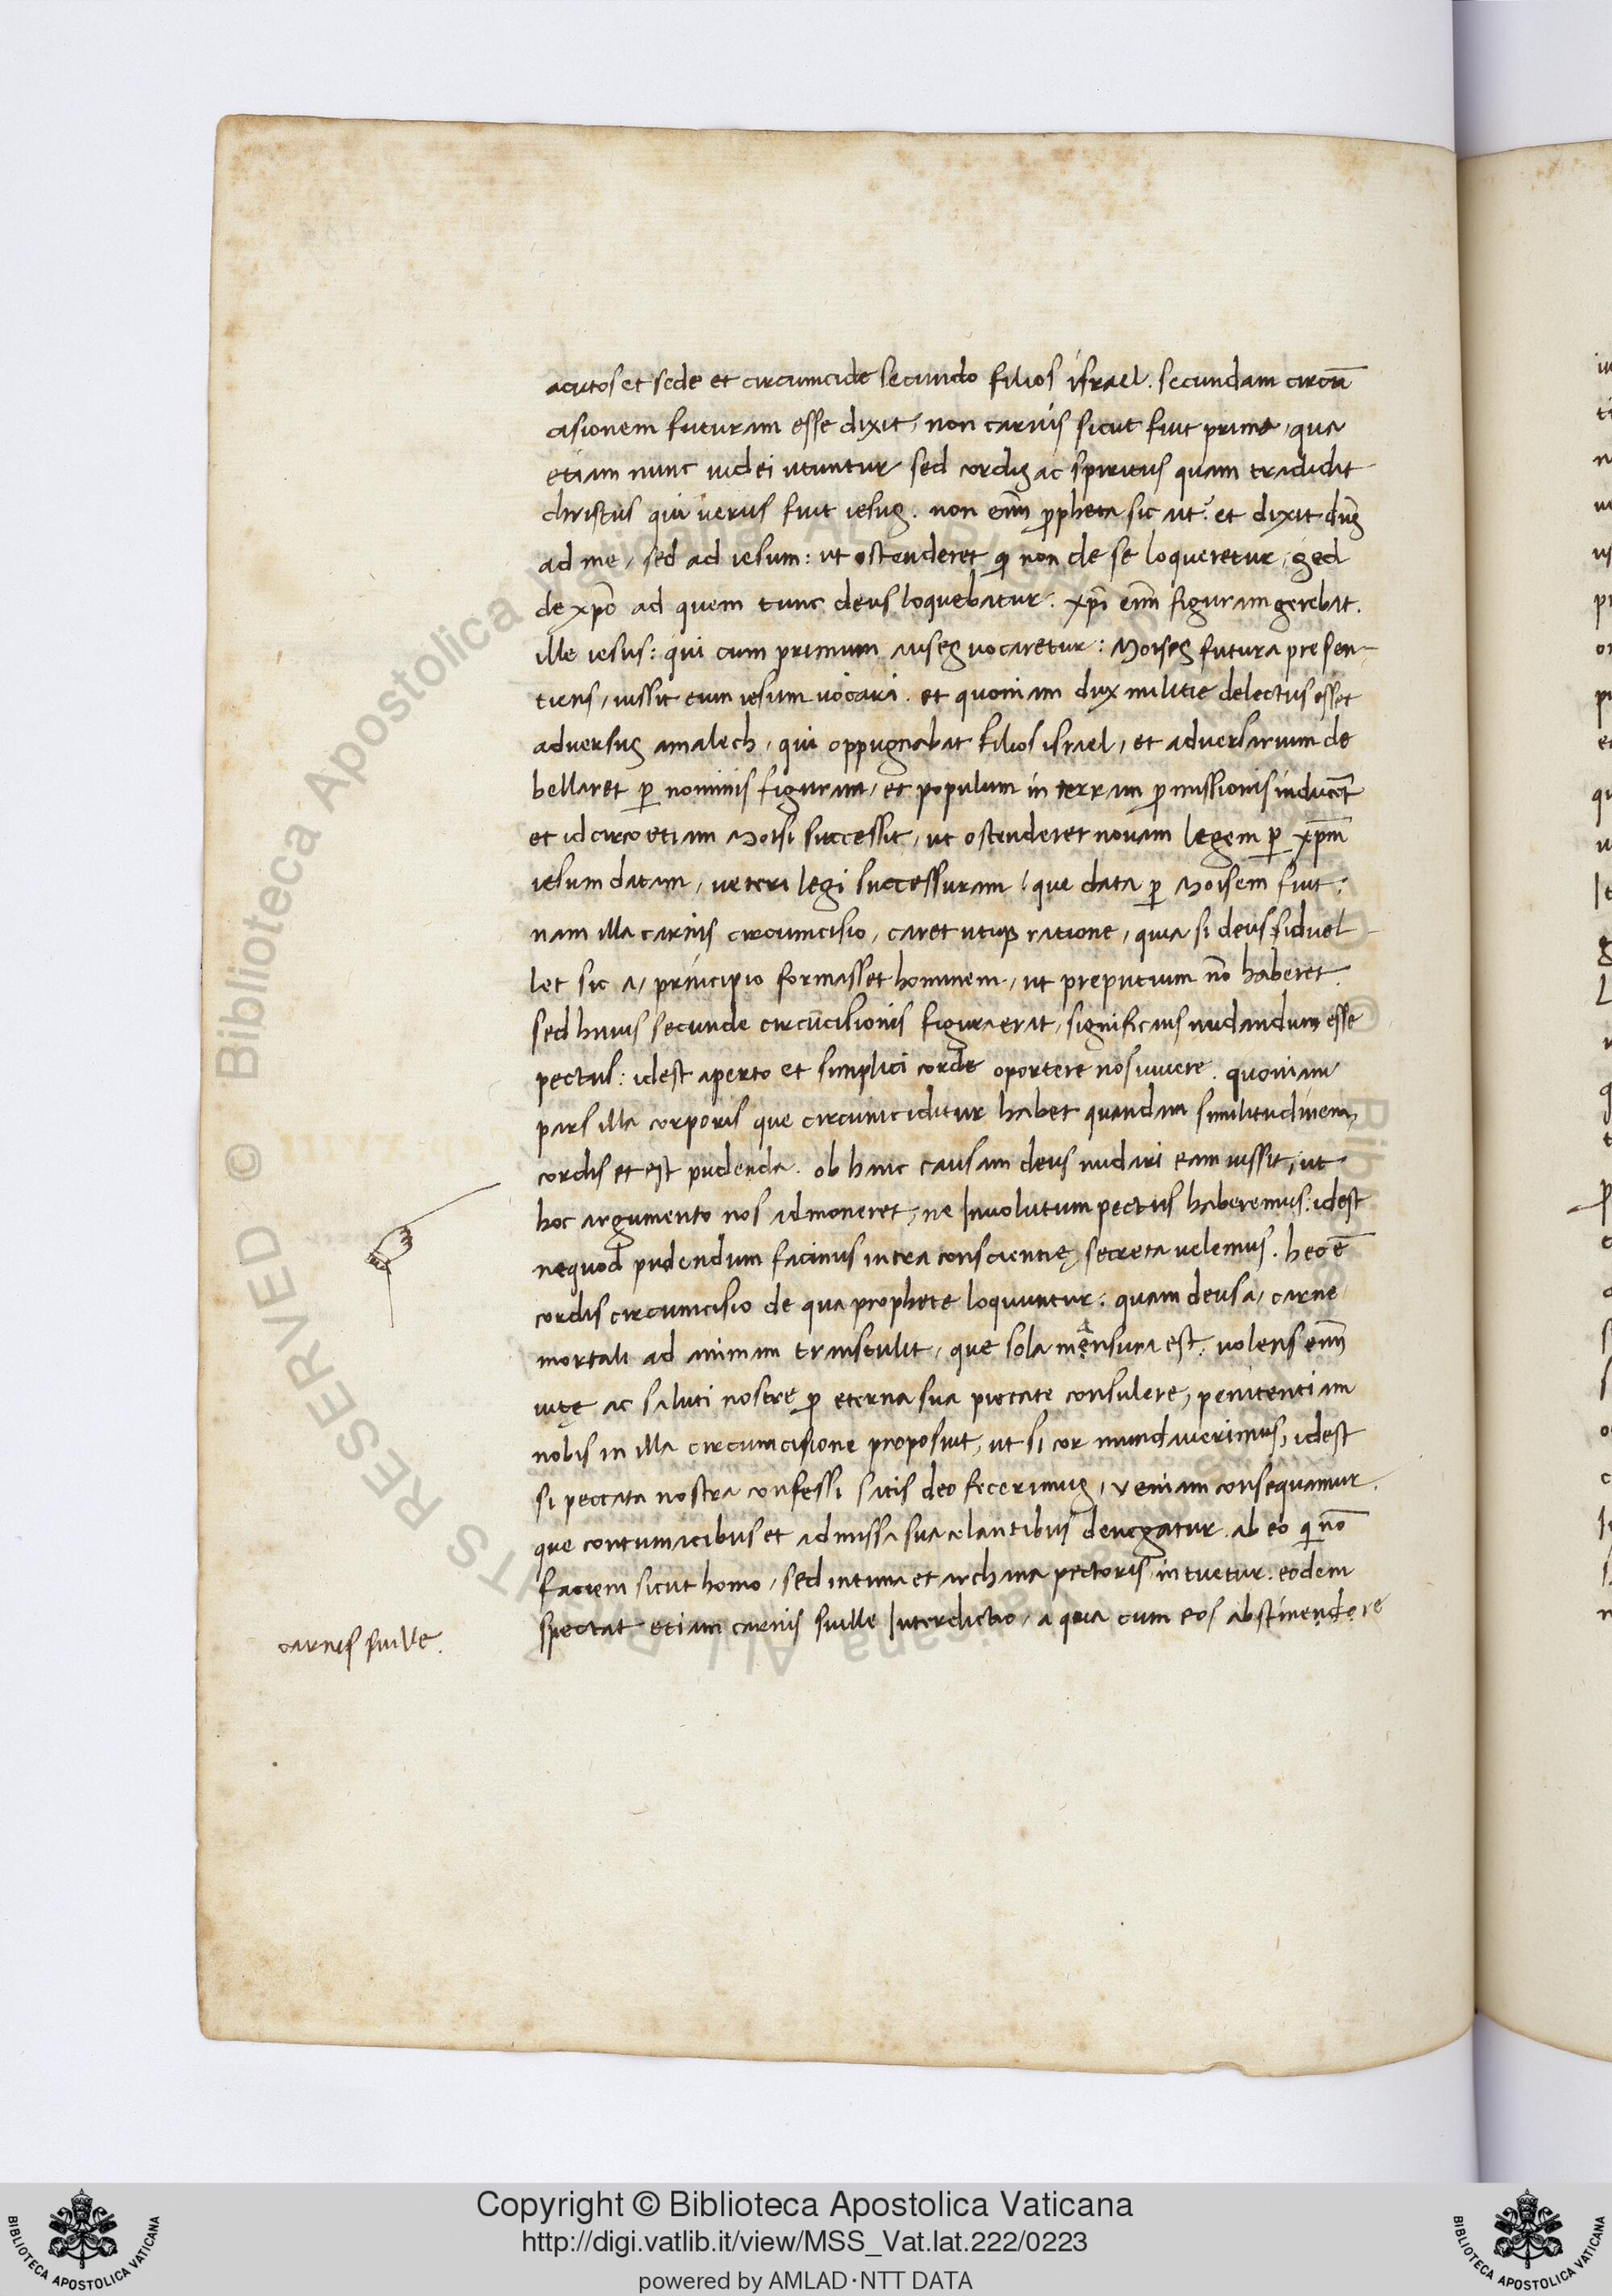 acutos et sede et circumcide secundo filios israel. secundam circū
cisionem futuram esse dixit, non carnis sicut fuit prime, qua
etiam nunc iudei utuntur sed cordis ac spiritus quam tradidit
christus qui uerus fuit iesus. non eni͞m ꝓpheta sic ait? et dixit dn͞s
ad me, sed ad iesum: ut ostenderet ꝙ non de se loqueretur, sed
de xp͞o ad quem tunc deus loquebatur. xp͞i eni͞m figuram gerebat.
ille iesus: qui cum primum auses uocaretur: Moises futura presen-
tiens, iussit eum iesum uocari. et quoniam dux militie delectus esset
adversus amalech, qui oppugnabat filios israel, et adversarium de
bellaret ꝑ nominis figuram, et populum in terram ꝓmissionis induc͞et
et idcirco etiam Moisi successit, ut ostenderet novam legem ꝑ xp͞m
iesum datam, ueteri legi successuram, que data ꝑ Moisem fuit:
nam illa carnis circumcisio, caret utiqꝫ ratione, quia si deus siduel
let sic a, principio formasset hominem, ut preputium no͞ haberet.
sed huius secunde circūcisionis figura erat, significans nudandum esse
pectus: idest aperto et simplici corde oportere nos uiuere. quoniam
pars illa corporis que circumciditur habet quandam similitudinem,
cordis et est pudenda. ob hanc causam deus nudari eam iussit, ut
hoc argumento nos admoneret, ne Involutum pectus haberemus: idest
nequod pudendum facinus intra conscientię secreta uelemus. hec e͞
cordis circumcisio de qua prophete loquuntur: quam deus a, carne
mortali ad animam transtulit, que sola mẹansura est. uolens eni͞m
uitę ac saluti nostre ꝓ eterna sua pietate consulere, penitentiam
nobis in illa circumcisione proposuit, ut si cor mundauerimus, idest
si peccata nostra confessi satis deo fecerimus, veniam consequamur.
que contumacibus et admissa sua celantibus denegatur. ab eo q no͞
faciem sicut homo, sed intima et archana pectoris intuetur. eodem
spectat etiam carnis suille Interdictio, a qua cum eos abstinendere
carnes suille.
Copyright © Biblioteca Apostolica Vaticana
http://digi.vatlib.it/view/MSS_Vat.lat.222/0223
powered by AMLAD·NTT DATA